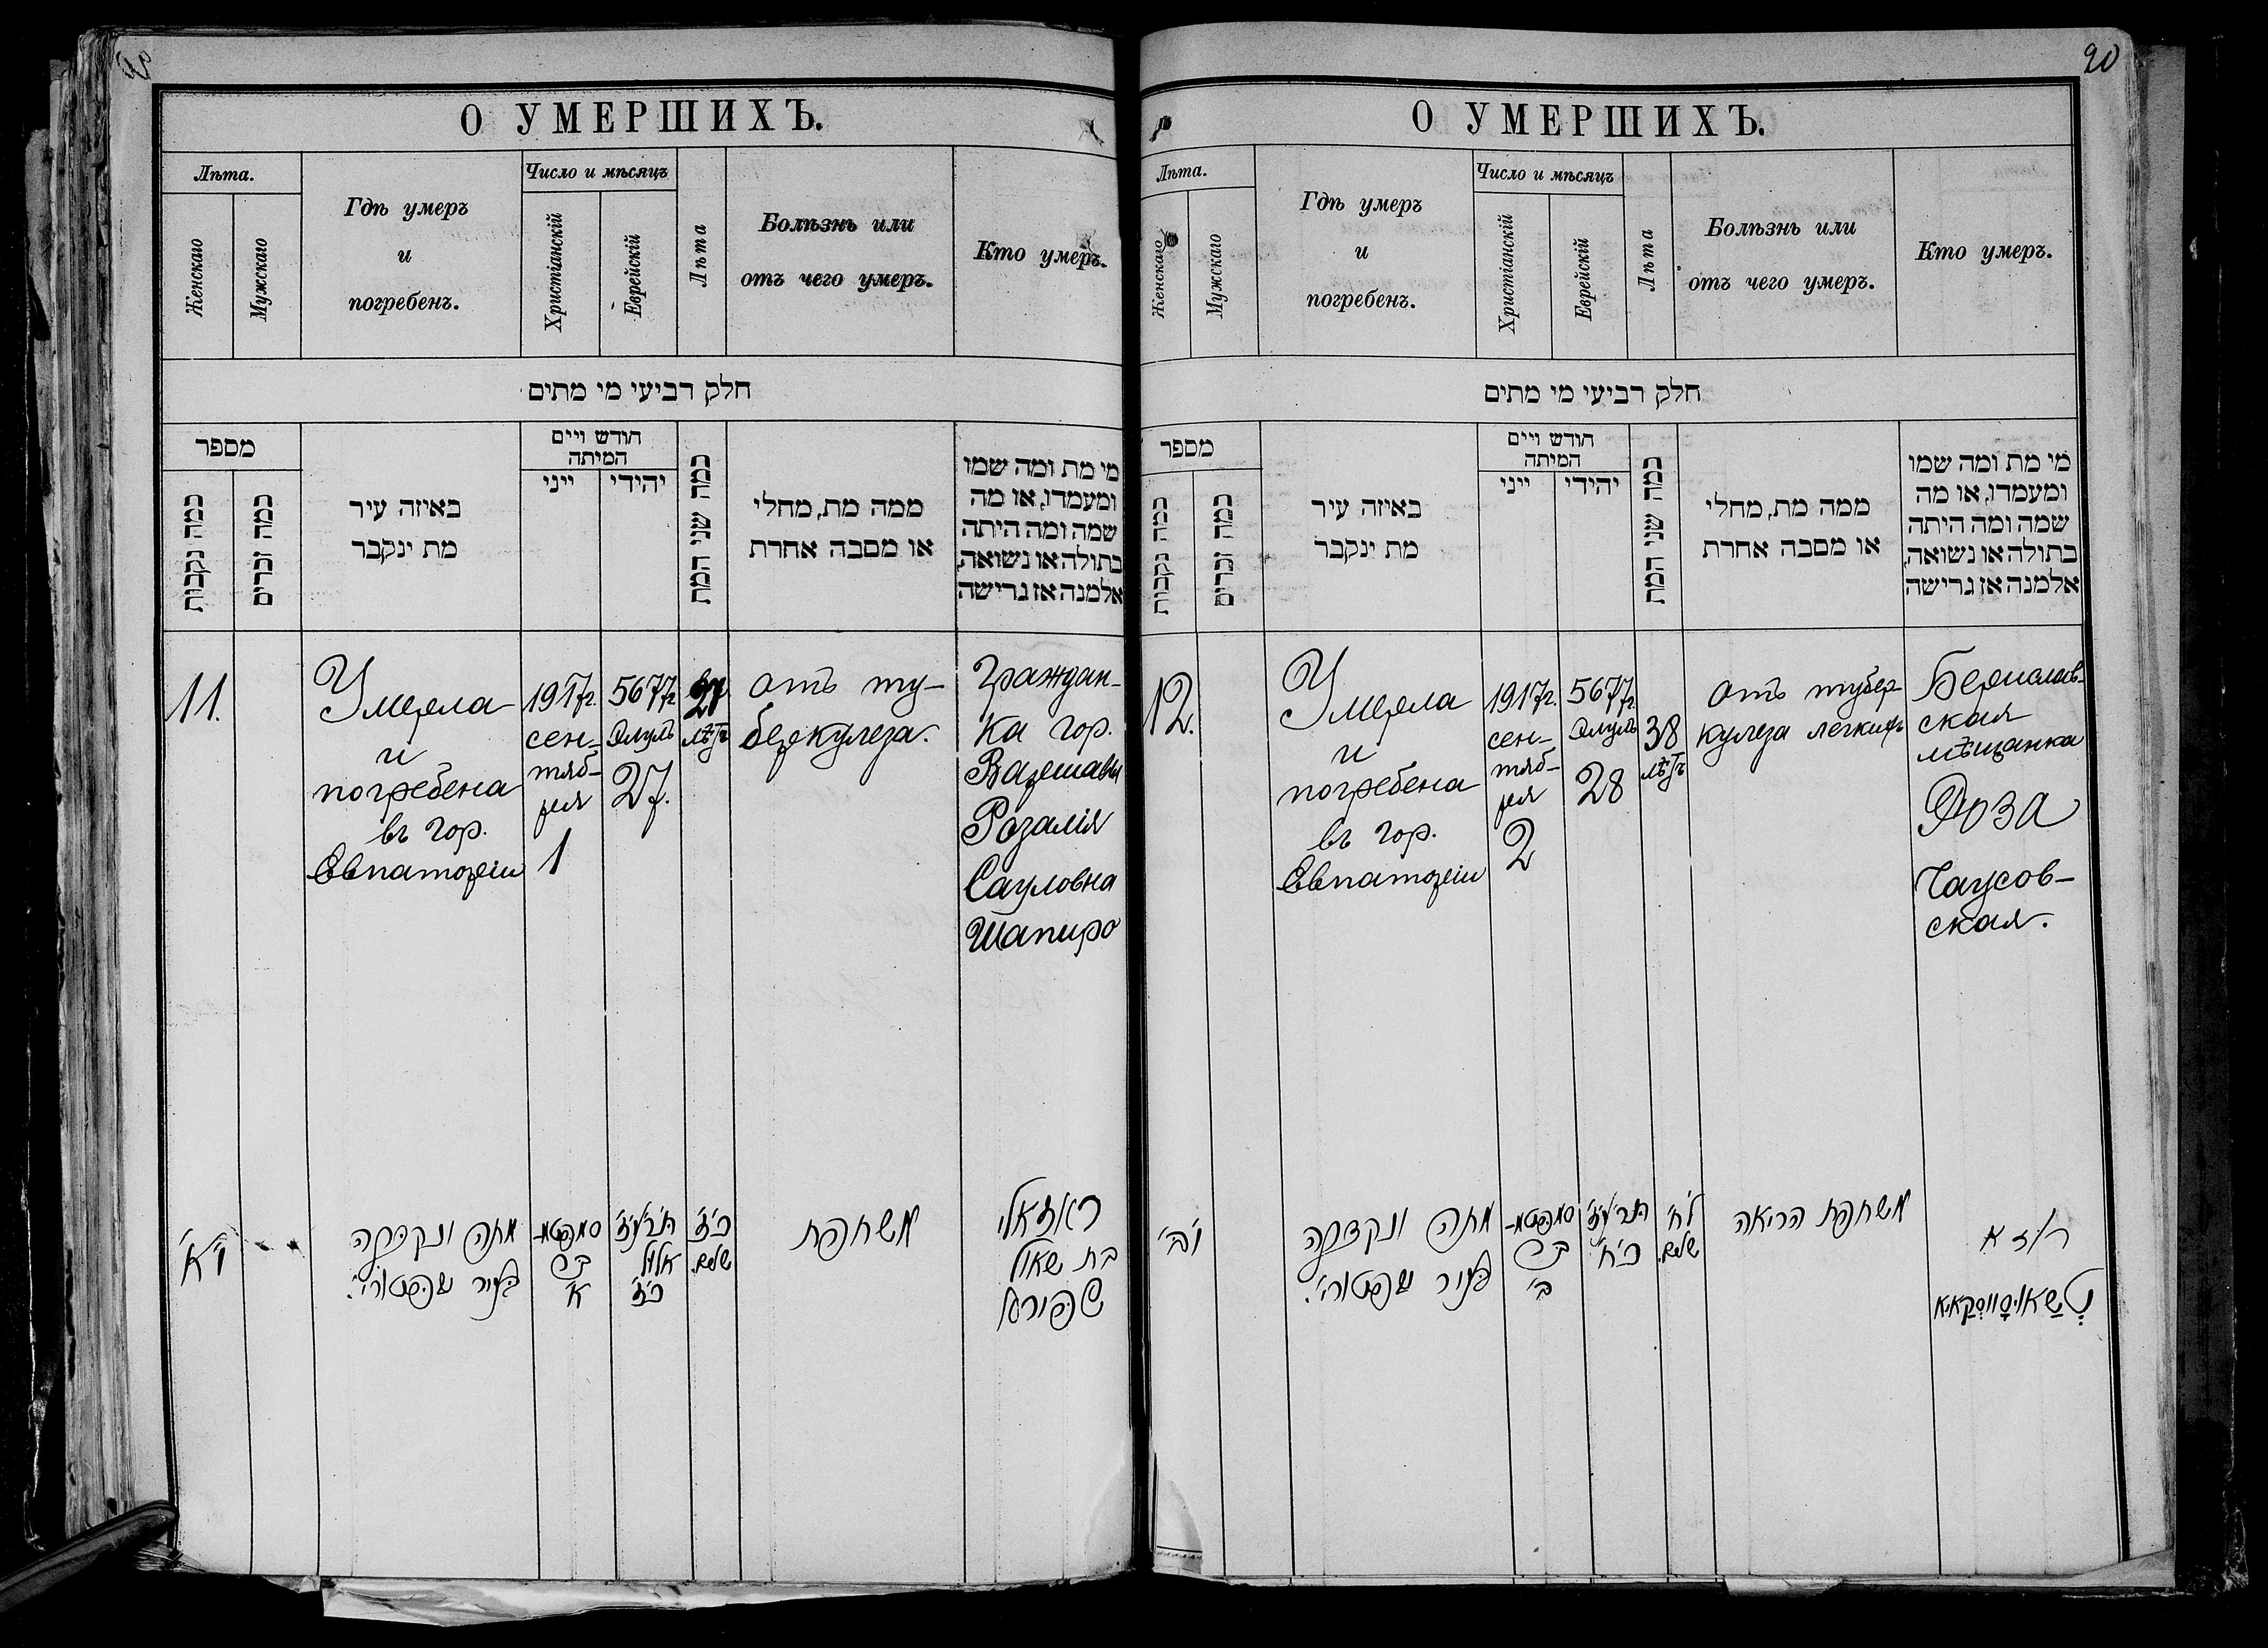 О УМЕРШИХЪ.
Лѣта.
Женскаго
Мужскаго
Гдѣ умеръ
и
погребенъ.
Число и мѣсяцъ
Христіанскій
Еврейскій
Лѣта
Болѣзнь или
отъ чего умеръ.
Кто умеръ.
חלק רביעי מי מתים
מספר
כמה נקבות
כמה זכרים
באיזה עיר
מת ינקבר
חודש ויים
המיתה
ייני
יהידי
כמה שני המת
ממה מת, מחלי
או מסבה אחרת
מי מת ומה שמו
ומעמדו, או מה
שמה ומה היתה
בתולה או נשואה,
אלמנה אז גרישה
11.
Умерла
и
погребена
въ гор.
Евпаторіи
1917г.
сен-
тяб-
ря
1
5677г
Элулъ
27.
27
лѣтъ
отъ ту-
беркулеза.
Граждан-
ка гор.
Варшавы
Розалія
Сауловна
Шапиро
י"א
מתה ונקברה
בעיר
סעפטמ-
בר
א'
תרע"ז
אלול
כ"ז
כ"ז
שנים.
משחפת
ראזאלי
בת שאול
שפירא
20
О УМЕРШИХЪ.
Лѣта.
Женскаго
Мужскаго
Гдѣ умеръ
и
погребенъ.
Число и мѣсяцъ
Христіанскій
Еврейскій
Лѣта
Болѣзнь или
отъ чего умеръ.
Кто умеръ.
חלק רביעי מי מתים
מספר
כמה נקבות
כמה זכרים
באיזה עיר
מת ינקבר
חודש ויים
המיתה
ייני
יהידי
כמה שני המת
ממה מת, מחלי
או מסבה אחרת
מי מת ומה שמו
ומעמדו, או מה
שמה ומה היתה
בתולה או נשואה,
אלמנה אז גרישה
12.
Умерла
и
погребена
въ гор.
Евпаторіи
1917г.
сен-
тяб-
ря
2
5677г
Элулъ
28
38
лѣтъ
отъ тубер-
кулеза легкихъ
Бериславс-
ская
мѣщанка
Роза
Чаусов-
ская.
מתה ונקברה
בעיר
סעפטמ-
בר
ב'
תרע"ז
כ"ח
ל"ח
שנים.
משחפת הריאה
ראזא
טשאוסווסקאיא